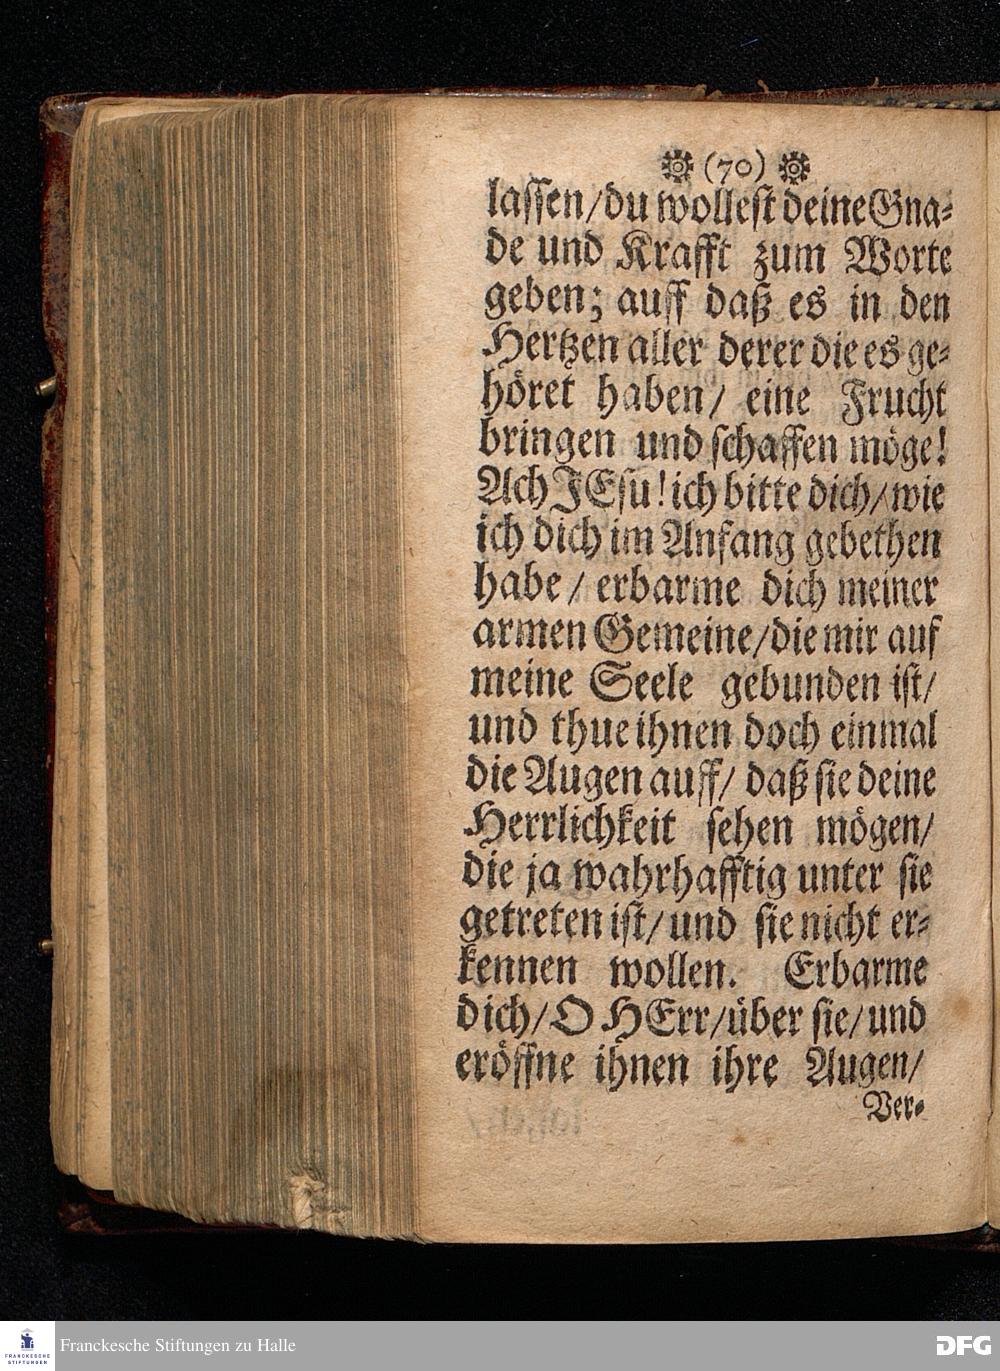 (70)
lassen/du wollest deine Gna-
de und Krafft zum Worte
geben; auff daß es in den
Hertzen aller derer die es ge-
höret haben/ eine Frucht
bringen und schaffen möge!
Ach JEsu! ich bitte dich/wie
ich dich im Anfang gebethen
habe/ erbarme dich meiner
armen Gemeine/die mir auf
meine Seele gebunden ist/
und thue ihnen doch einmal
die Augen auff/ daß sie deine
Herrlichkeit sehen mögen/
die ja wahrhafftig unter sie
getreten ist/und sie nicht er-
kennen wollen. Erbarme
dich/O HErr/über sie/und
eröffne ihnen ihre Augen/
Ver-
FRANCKESCHE
STIFTUNGEN
Franckesche Stiftungen zu Halle
DFG